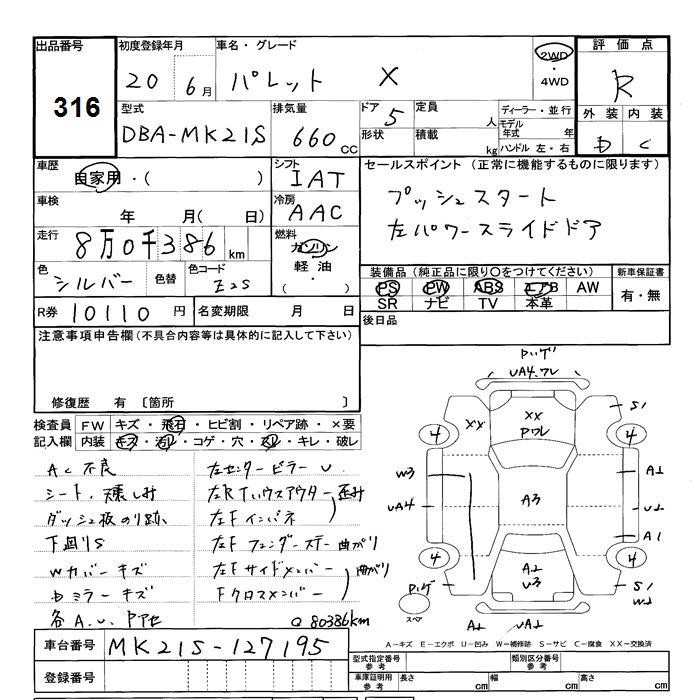 出品番号 初度登録年月 車名・グレード 2WD・4WD 評価点
316 20 6月 パレット X R
型式 排気量 ドア 5 定員 人 ディーラー・並行 外装 内装
DBA-MK21S 660cc 形状 積載 kg モデル年式 年 ハンドル 左・右 D C
車歴 自家用・( ) シフト IAT セールスポイント (正常に機能するものに限ります)
車検 年 月(日) 冷房 AAC プッシュスタート
走行 8万0千386km 燃料 ガソリン 軽油・( ) 左パワースライドドア
色 シルバー 色替 色コード Z2S 装備品 (純正品に限り○をつけてください) 新車保証書
PS PW ABS エアB AW 有・無
SR ナビ TV 本革
R券 10110円 名変期限 月 日 後日品
注意事項申告欄 (不具合内容等は具体的に記入して下さい)
修復歴 有 〔箇所 〕
検査員 FW キズ・飛石・ヒビ割・リペア跡・×要
記入欄 内装 キズ・汚レ・コゲ・穴・スレ・キレ・破レ
AC不良 左センターピラーU
シート、燻しみ 左Rタイハウスアウター歪み
ダッシュ板のり跡 左Fインパネ
下回りS 左Fフェンダーステー曲がり
Wカバーキズ 左Fサイドメンバー 曲がり
Dミラーキズ Fクロスメンバー
各A.U.Pアセ Q 80386km
Pハゲ
UA4.ワレ
XX XX Pワレ S1
4 4
W3 A1
UA4 A3 U1
A1
4 4
A1 U3 S1 W2
Pハゲ スペア
A1 UA1
A-キズ E-エクボ U-凹み W-補修跡 S-サビ C-腐食 XX-交換済
車台番号 MK21S-127195
登録番号
型式指定番号 参考 類別区分番号 参考
車庫証明用 参考 長さ cm 幅 cm 高さ cm